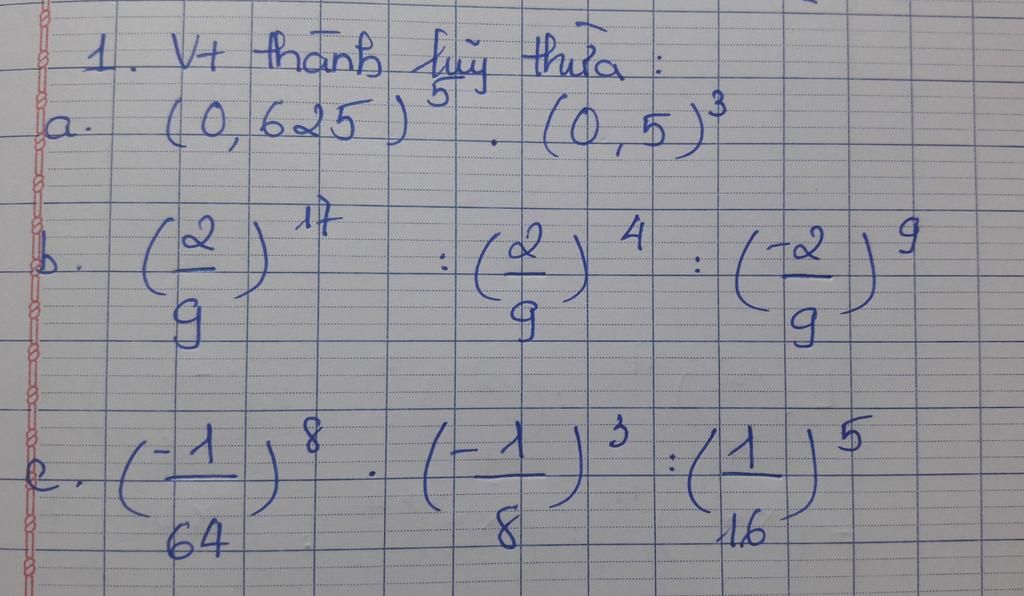 1. Vt thành luỹ thừa :
a. (0,625)^5 . (0,5)^3
b. (2/9)^17 : (2/9)^4 : (-2/9)^9
c. (-1/64)^8 . (-1/8)^3 : (1/16)^5